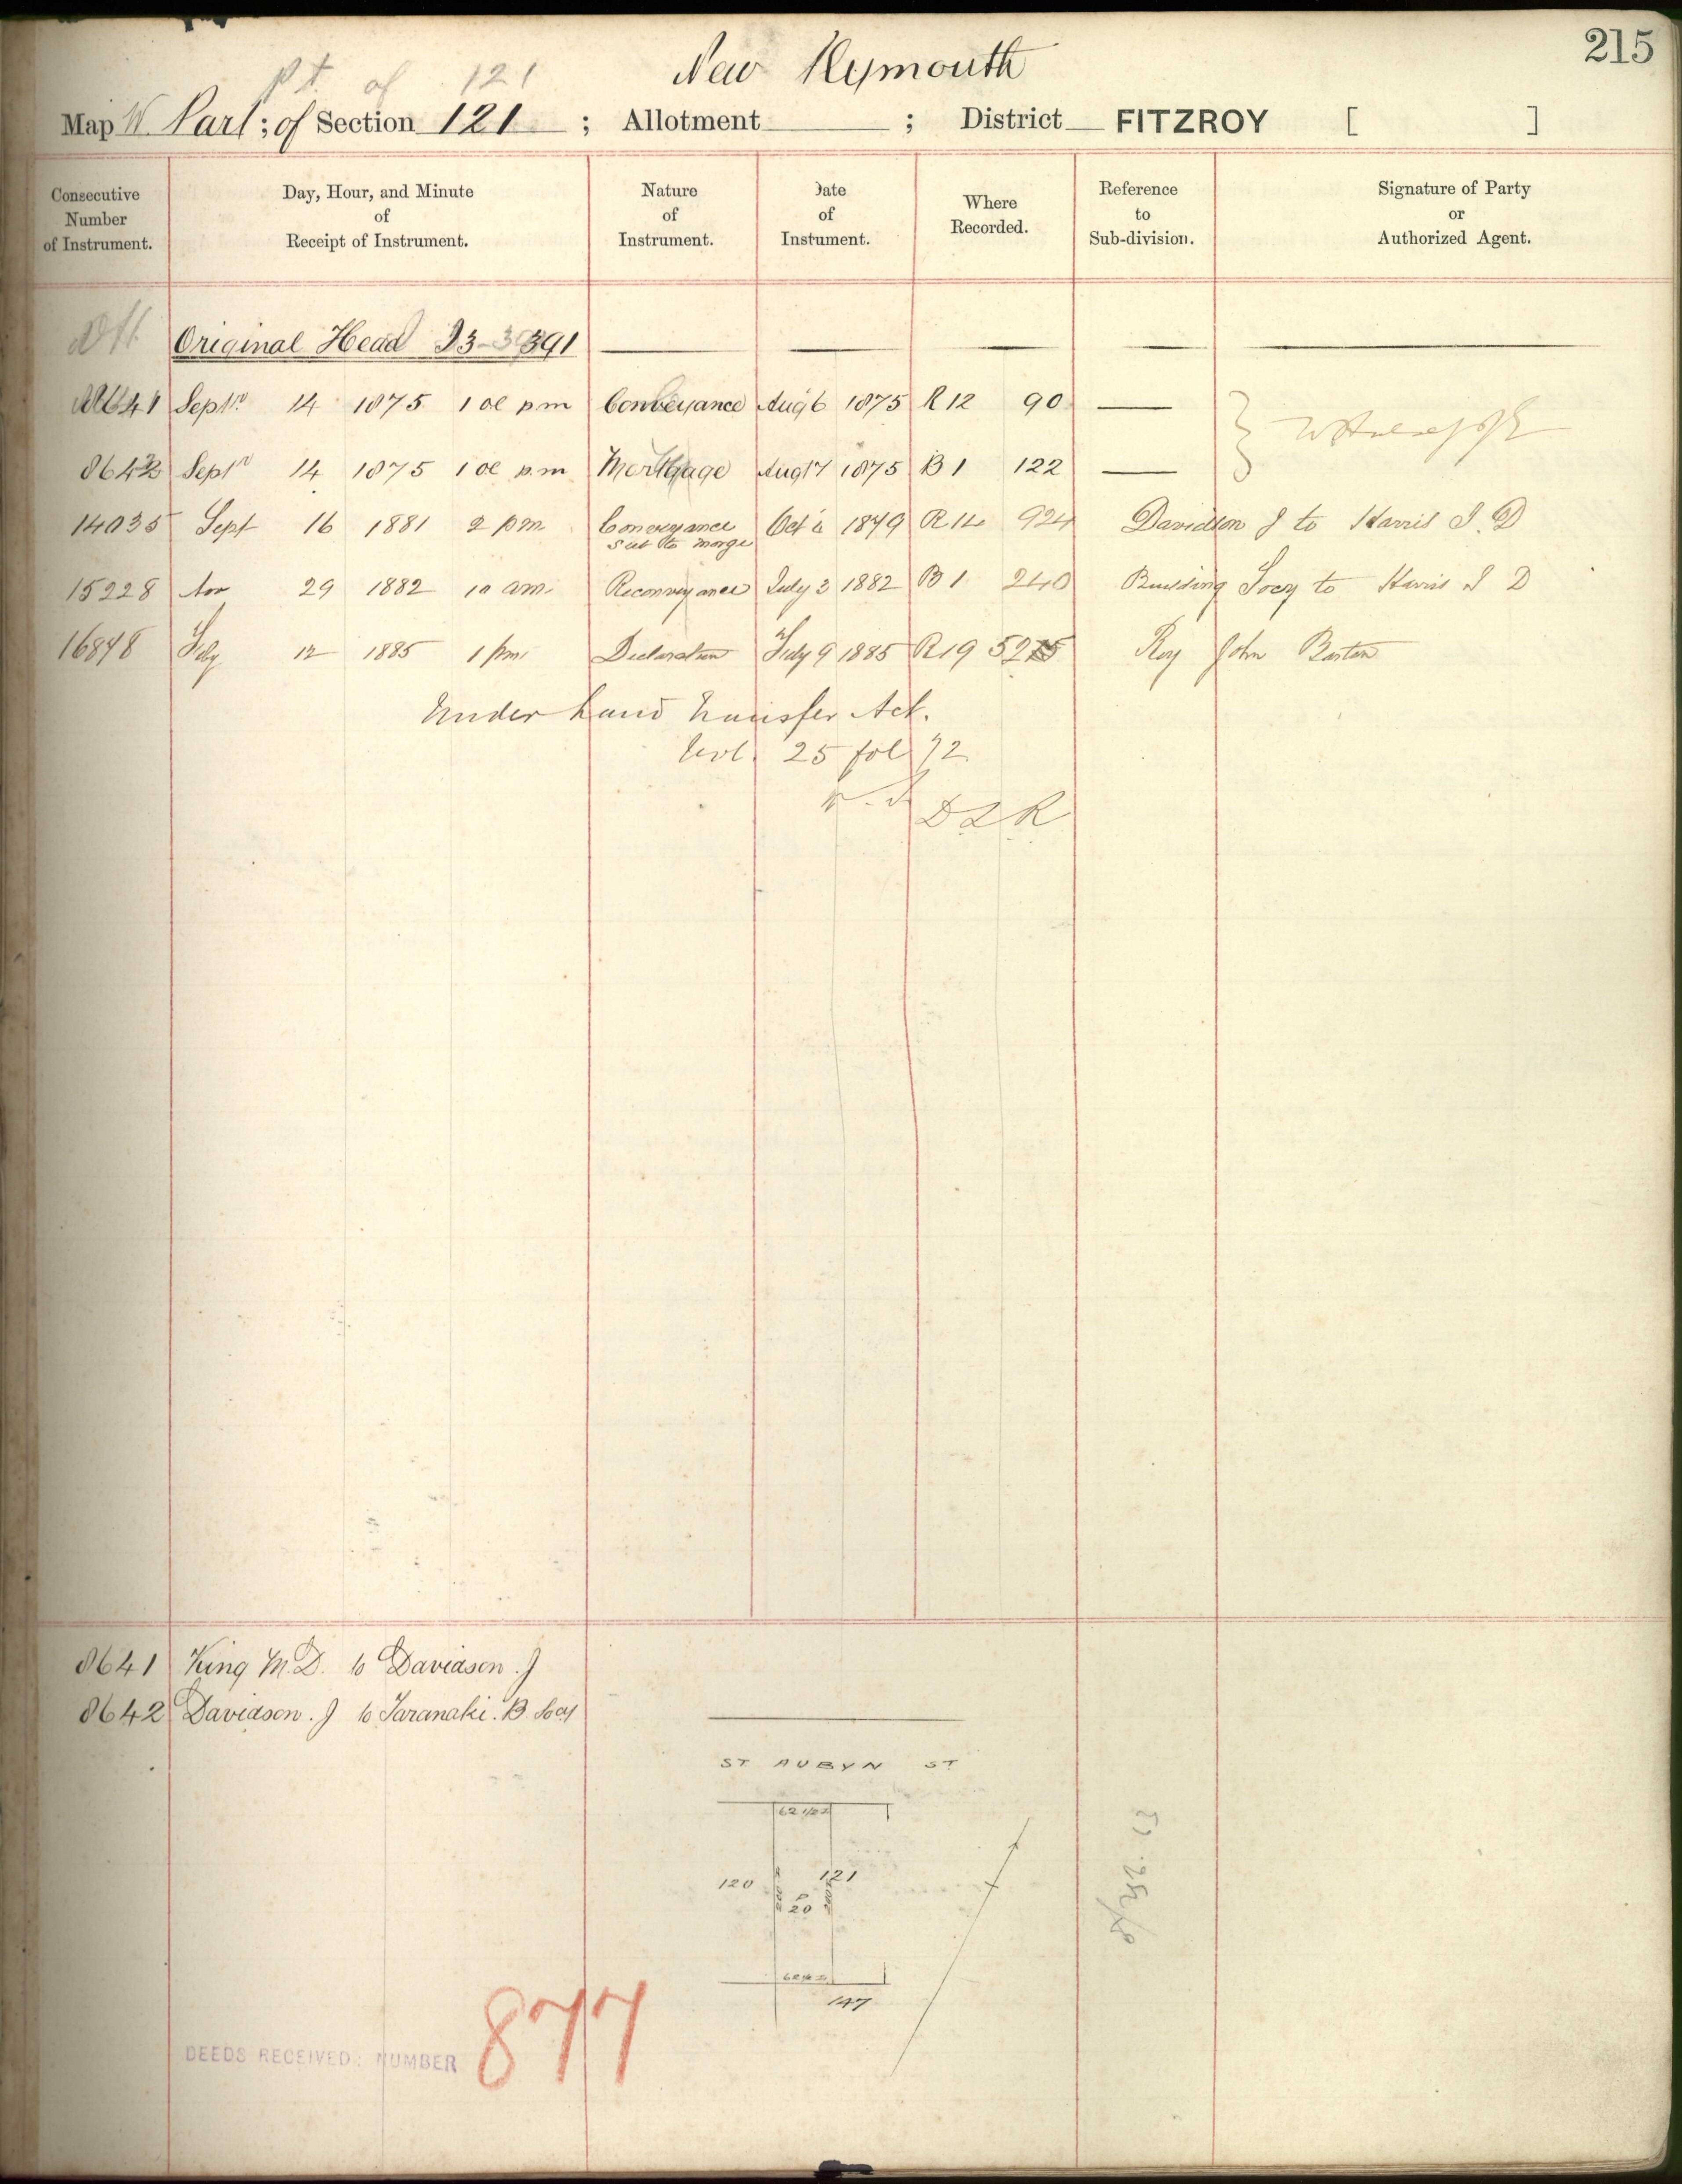 215
New Plymouth
pt. of 121
Map W Part; of Section 121 ; Allotment ; District FITZROY [ ]
Consecutive Number of Instrument.
Day, Hour, and Minute of Receipt of Instrument.
Nature of Instrument.
Date of Instument.
Where Recorded.
Reference to Sub-division.
Signature of Party or Authorized Agent.
Original Head 391
8641 Septr 14 1875 1 pm Conveyance Aug 6 1875 R12 90
8642 Septr 14 1875 1 p.m Mortgage Aug 17 1875 B1 122
14035 Sept 16 1881 2 pm Conveyance Oct 1879 R14 924 Davidson J to Harris I. D
sub to morge
15228 Nov 29 1882 10 am Reconveyance July 3 1882 B1 240 Building Socy to Harris I D
16848 Feby 12 1885 1 pm Declaration Feby 9 1885 R19 525 Roy John Barton
Under Land Transfer Act.
Vol. 25 fol 72
DLR
8641 King M.D. to Davidson. J
8642 Davidson. J to Taranaki. B. Socy
ST AUBYN ST
120
121
P 20
147
DEEDS RECEIVED: NUMBER 877